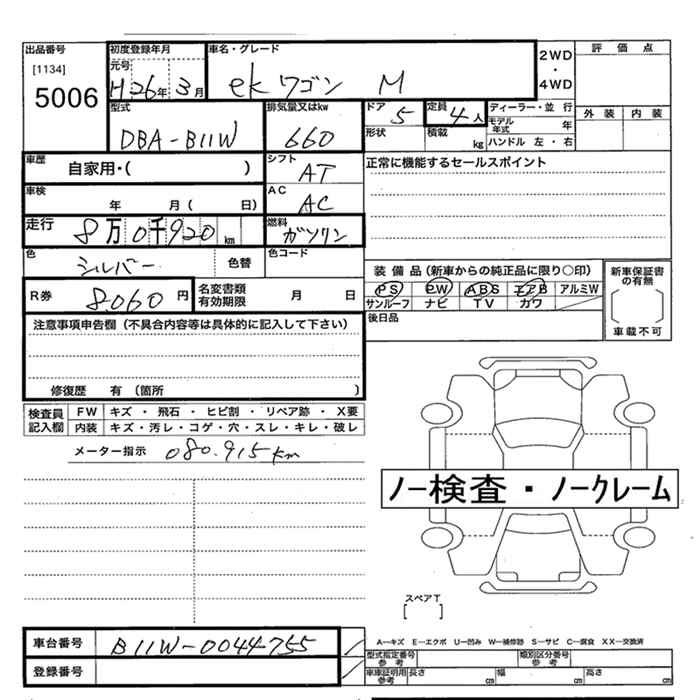 出品番号
[1134]
5006
初度登録年月
元号
H26年 3月
車名・グレード
ek ワゴン M
2WD
・
4WD
評価点
外装 内装
型式
DBA-B11W
排気量又はkw
660
ドア 5
定員 4人
形状
積載 kg
ディーラー・並 行
モデル年式 年
ハンドル 左・右
車歴
自家用・( )
シフト
AT
正常に機能するセールスポイント
車検
年 月( 日)
AC
AC
走行
8万0千920km
燃料
ガソリン
色
シルバー
色替
色コード
装備品(新車からの純正品に限り○印)
PS PW ABS エアB アルミW
サンルーフ ナビ TV カワ
新車保証書の有無
車載不可
R券
8.060円
名変書類有効期限
月 日
後日品
注意事項申告欄(不具合内容等は具体的に記入して下さい)
修復歴 有(箇所 )
検査員記入欄
FW キズ・飛石・ヒビ割・リペア跡・X要
内装 キズ・汚レ・コゲ・穴・スレ・キレ・破レ
メーター指示 080.915km
ノー検査・ノークレーム
スペアT
[ ]
車台番号 B11W-0044755
登録番号
A―キズ E―エクボ U―凹み W―補修跡 S―サビ C―腐食 XX―交換済
型式指定番号 参考
類別区分番号 参考
車庫証明用 参考
長さ cm 幅 cm 高さ cm